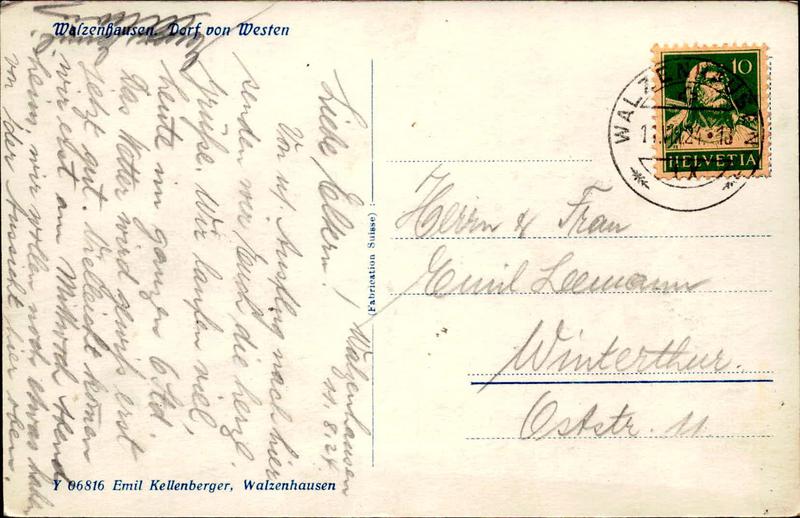 Walzenhausen. Dorf von Westen
Walzenhausen
11.8.24
Liebe Eltern!
Von u/ Ausflug nach hier
senden wir Euch die herzl.
Grüße. Wir laufen viel,
heute im ganzen 6 Std.
Das Wetter wird gewiß erst
jetzt gut. Vielleicht kommen
wir erst am Mittwoch Abend
heim, wir wollen noch etwas haben
von der Aussicht hier oben.
(Fabrication Suisse)
10
HELVETIA
WALZENHAUSEN
Herrn & Frau
Emil Leemann
Winterthur.
Oststr. 11
Y 06816 Emil Kellenberger, Walzenhausen